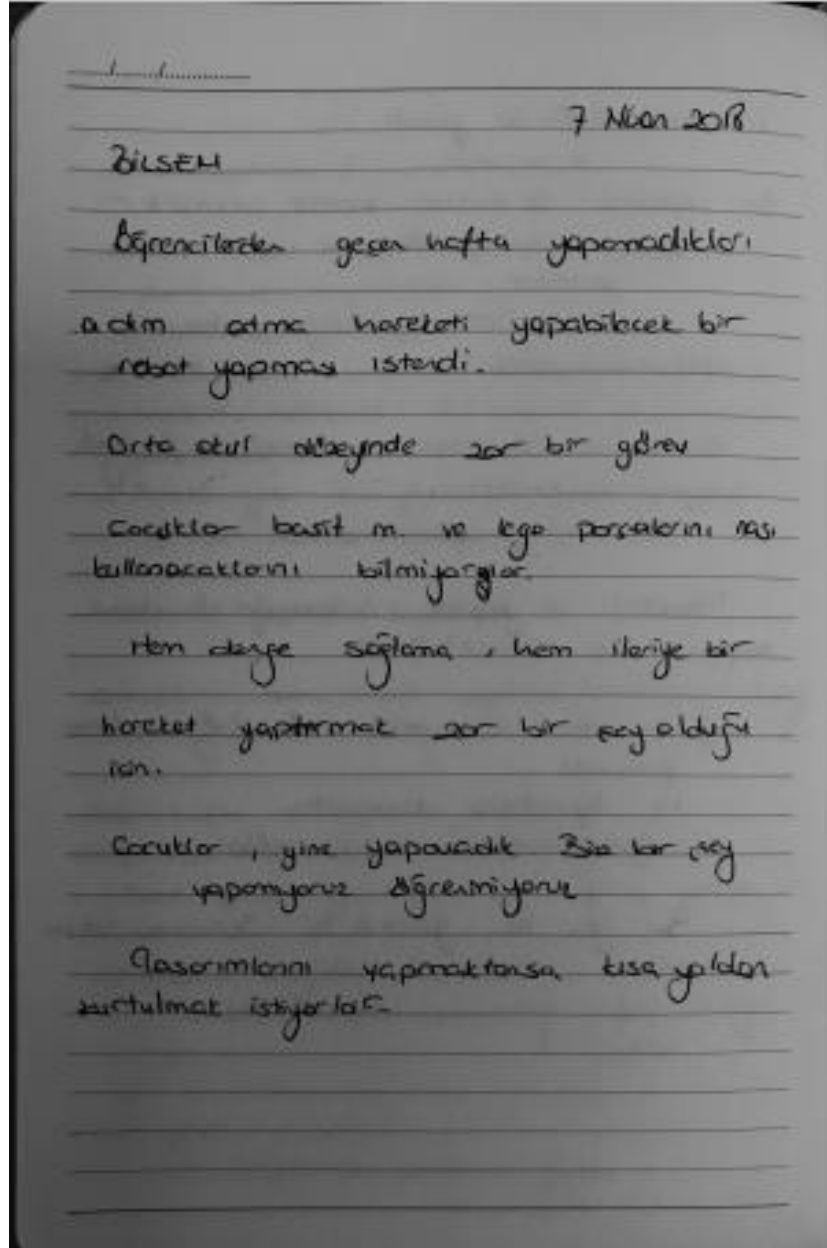 ..../..../............
7 Nisan 2018
BİLSEM
Öğrencilerden geçen hafta yapamadıkları
adım atma hareketi yapabilecek bir
robot yapması istendi.
Orta okul düzeyinde zor bir görev
Çocuklar basit m. ve lego parçalarını nası
kullanacaklarını bilmiyorlar.
Hem denge sağlama, hem ileriye bir
hareket yaptırmak zor bir şey olduğu
için.
Çocuklar, yine yapamadık Biz bir şey
yapamıyoruz öğrenmiyoruz
Tasarımlarını yapmaktansa kısa yoldan
kurtulmak istiyorlar.